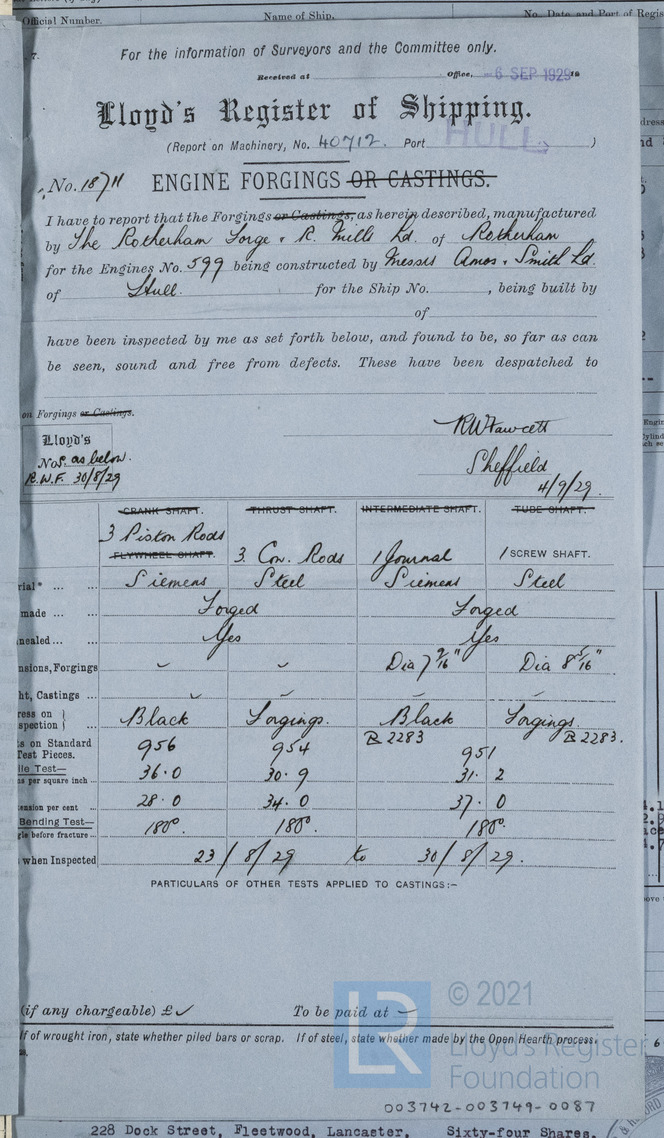 Official Number.
Name of Ship.
No. Date and Port of Regis
For the information of Surveyors and the Committee only.
Received at Office, -6 SEP 1929 19
Lloyd's Register of Shipping.
(Report on Machinery, No. 40712. Port HULL )
No. 18711 ENGINE FORGINGS OR CASTINGS.
I have to report that the Forgings or Castings, as herein described, manufactured
by The Rotherham Forge & R. Mills Ld. of Rotherham
for the Engines No. 599 being constructed by Messrs Amos & Smith Ld.
of Hull. for the Ship No. , being built by
of
have been inspected by me as set forth below, and found to be, so far as can
be seen, sound and free from defects. These have been despatched to
on Forgings or Castings.
Lloyd's
Nos. as below.
R.W.F. 30/8/29
RWFawcett
Sheffield
4/9/29.
CRANK SHAFT. THRUST SHAFT. INTERMEDIATE SHAFT. TUBE SHAFT.
3 Piston Rods
FLYWHEEL SHAFT. 3. Con. Rods 1 Journal 1 SCREW SHAFT.
rial* ... ... Siemens Steel Siemens Steel
made ... ... Forged Forged
nealed ... ... Yes Yes
nsions, Forgings Dia 7 9/16" Dia 8 5/16"
ht, Castings ...
ress on
spection Black Forgings. Black Forgings.
s on Standard B 2283 B 2283.
Test Pieces. 956 954 951
ile Test—
ns per square inch ... 36.0 30.9 31.2
ension per cent ... 28.0 34.0 37.0
Bending Test—
gle before fracture ... 180°. 180°. 180°.
when Inspected 23/8/29 to 30/8/29.
PARTICULARS OF OTHER TESTS APPLIED TO CASTINGS:—
(if any chargeable) £ To be paid at
If of wrought iron, state whether piled bars or scrap. If of steel, state whether made by the Open Hearth process.
© 2021
LR
Lloyd's Register
Foundation
003742-003749-0087
228 Dock Street, Fleetwood, Lancaster, Sixty-four Shares.